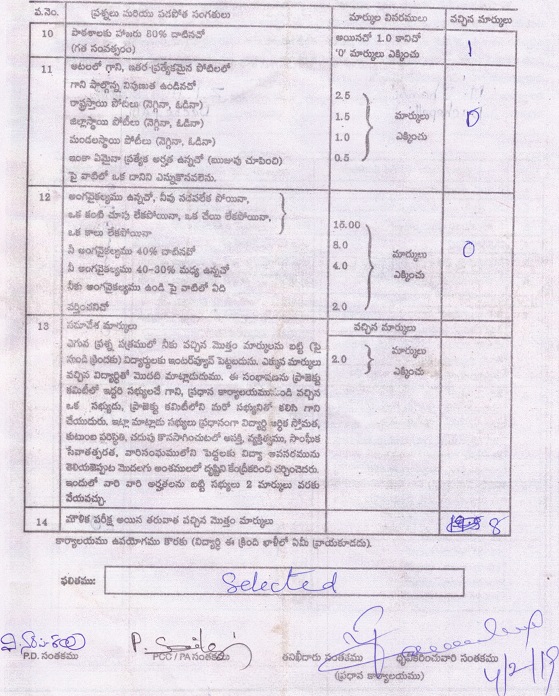 వ.నెం. ప్రశ్నలు మరియు పడపోత సంగతులు మార్కుల వివరములు వచ్చిన మార్కులు
10 పాఠశాలకు హాజరు 80% దాటినచో అయినచో 1.0 కానిచో 1
(గత సంవత్సరం) '0' మార్కులు ఎక్కించు
11 ఆటలలో గాని, ఇతర ప్రత్యేకమైన పోటిలలో
గాని పాల్గొన్న నిపుణుత ఉండినచో 2.5
రాష్ట్రస్థాయి పోటీలు (నెగ్గినా, ఓడినా) 1.5 మార్కులు 0
జిల్లాస్థాయి పోటీలు (నెగ్గినా, ఓడినా) 1.0 ఎక్కించు
మండలస్థాయి పోటీలు (నెగ్గినా, ఓడినా) 0.5
ఇంకా ఏమైనా ప్రత్యేక అర్హత ఉన్నచో (ఋజువు చూపించి)
పై వాటిలో ఒక దానిని ఎన్నుకొనవలెను.
12 అంగవైకల్యము ఉన్నచో, నీవు నడవలేక పోయినా,
ఒక కంటి చూపు లేకపోయినా, ఒక చేయి లేకపోయినా, 15.00
ఒక కాలు లేకపోయినా 8.0
నీ అంగవైకల్యము 40% దాటినచో 4.0 మార్కులు 0
నీ అంగవైకల్యము 40-30% మధ్య ఉన్నచో ఎక్కించు
నీకు అంగవైకల్యము ఉండి పై వాటిలో ఏది 2.0
వర్తించనిచో
13 సమావేశ మార్కులు వచ్చిన మార్కులు
ఎగువ ప్రశ్న పత్రములో నీకు వచ్చిన మొత్తం మార్కులను బట్టి (పై 2.0 మార్కులు
నుండి క్రిందకు) విద్యార్థులకు ఇంటర్వ్యూన్ పెట్టబడును. ఎక్కువ మార్కులు ఎక్కించు
వచ్చిన విద్యార్థితో మొదటి మాట్లాడుదుము. ఈ సంభాషణను ప్రాజెక్టు
కమిటీలో ఇద్దరి సభ్యులచే గాని, ప్రధాన కార్యాలయమునుండి వచ్చిన
ఒక సభ్యుడు, ప్రాజెక్టు కమిటీలోని మరో సభ్యునితో కలిసి గాని
చేయుదురు. ఇట్లా మాట్లాడు సభ్యులు ప్రధానంగా విద్యార్థి ఆర్థిక స్తోమత,
కుటుంబ పరిస్థితి, చదువు కొనసాగించుటలో ఆసక్తి, వ్యక్తిత్వము, సాంఘిక
సేవాతత్పరత, వారిసంఘములోని పెద్దలకు విద్యా అవసరమును
తెలియజెప్పుట మొదలగు అంశములలో దృష్టిని కేంద్రీకరించి చర్చించెదరు.
ఇందులో వారి వారి అర్హతలను బట్టి సభ్యులు 2 మార్కులు వరకు
వేయవచ్చు.
14 మౌళిక పరీక్ష అయిన తరువాత వచ్చిన మొత్తం మార్కులు 8
కార్యాలయము ఉపయోగము కొరకు (విద్యార్థి ఈ క్రింది ఖాళీలో ఏమీ వ్రాయకూడదు).
ఫలితము: Selected
P.D. సంతకము PCC / PA సంతకము తనిఖీదారు సంతకము ధృవీకరించువారి సంతకము
(ప్రధాన కార్యాలయం) 4/2/18